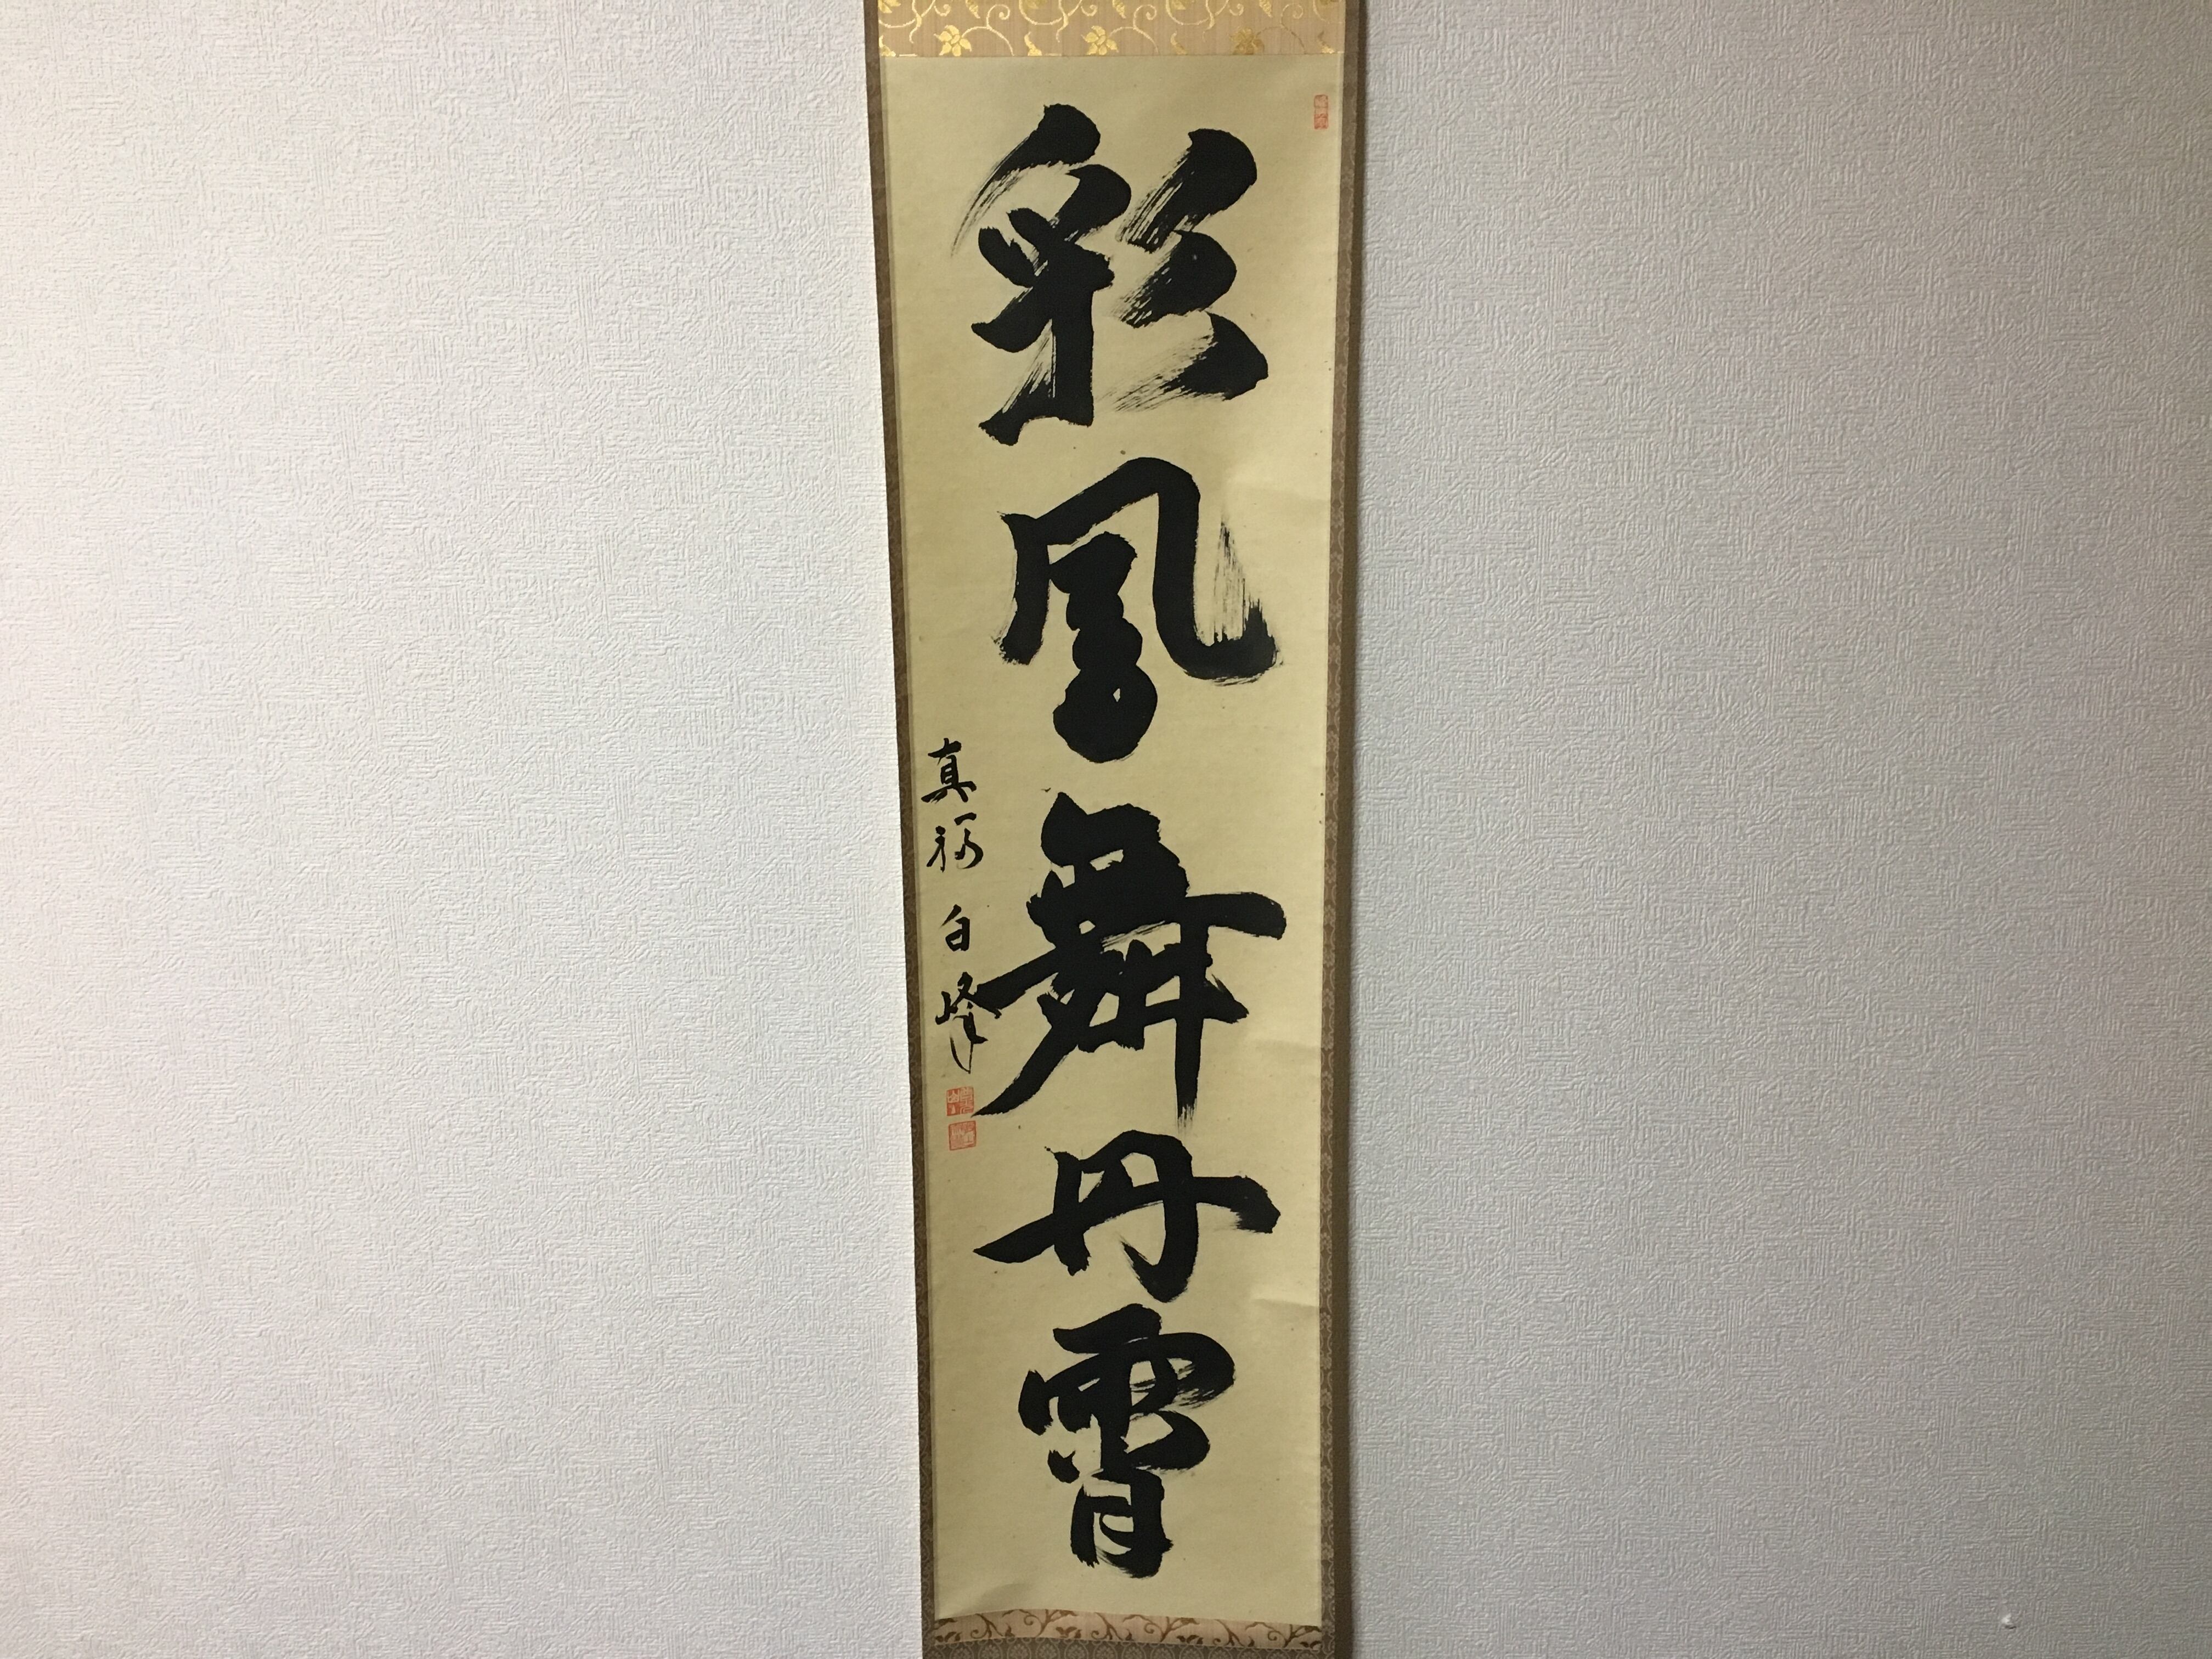 彩鳳舞丹霄
真福 白峰